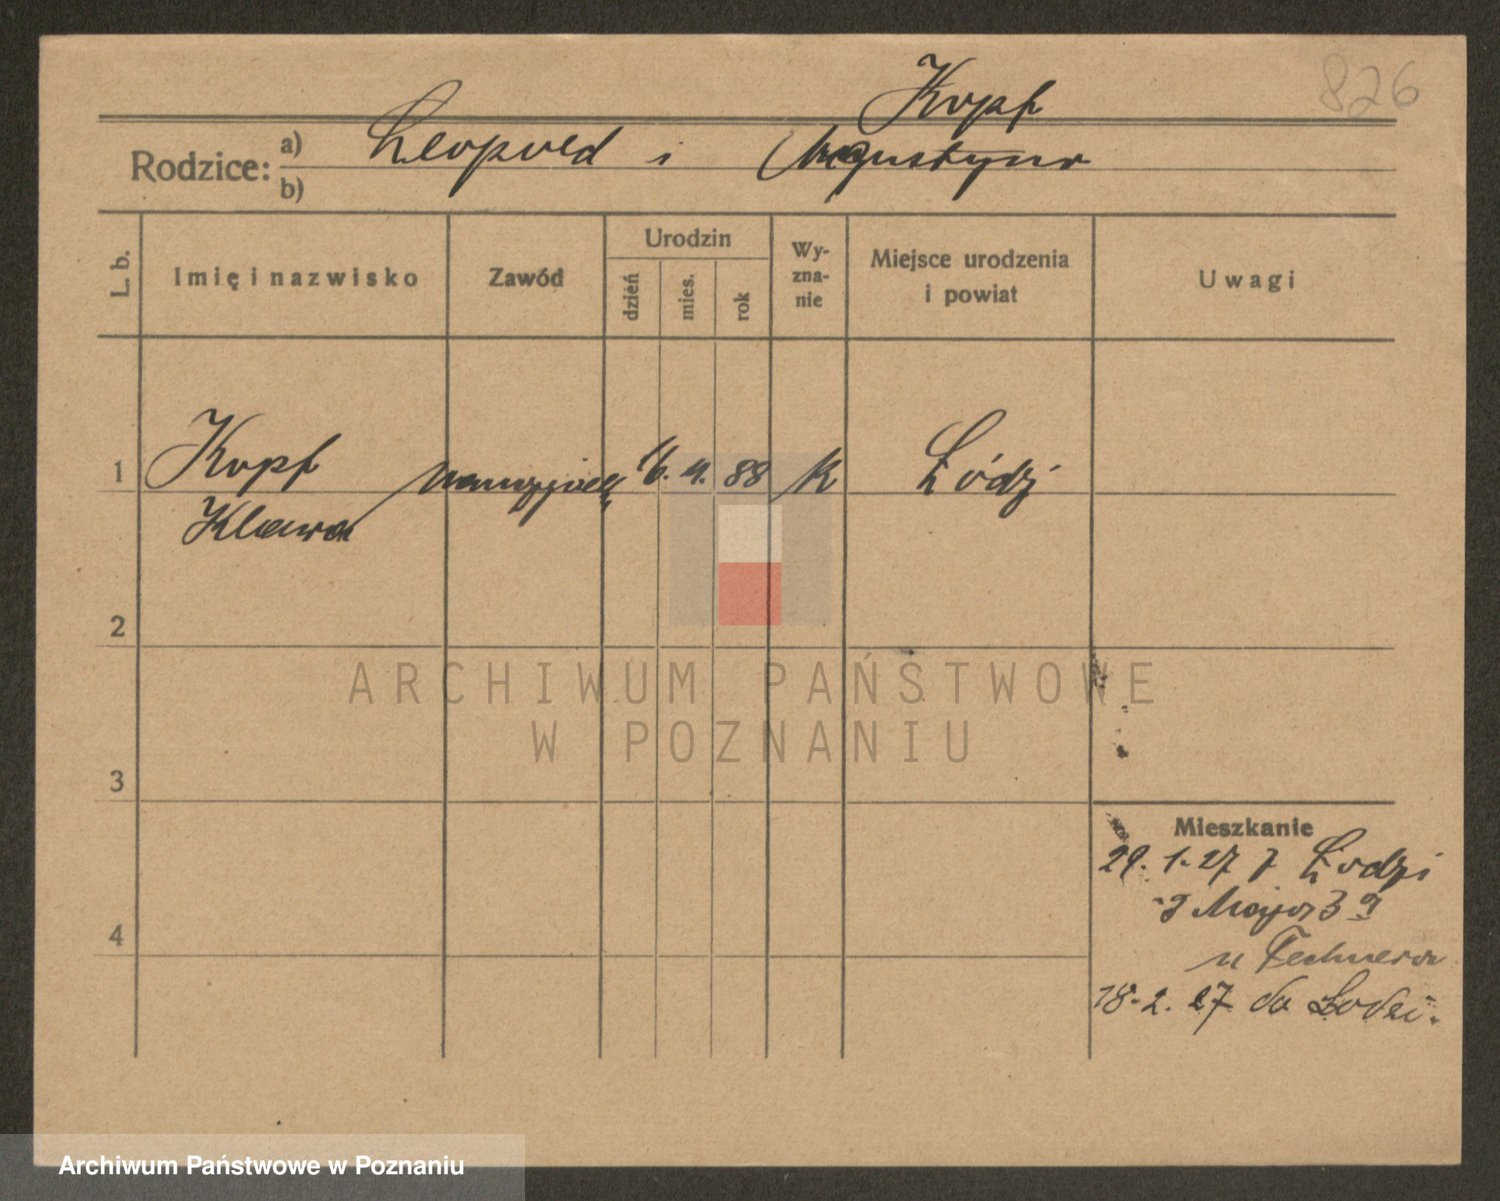 826
Kopf
Rodzice: a) Leopold i Augustyna
b)
L. b. Imię i nazwisko Zawód Urodzin dzień mies. rok Wy-zna-nie Miejsce urodzenia i powiat Uwagi
1 Kopf 88 k Łódź
Klara
2
ARCHIWUM PAŃSTWOWE
W POZNANIU
3
Mieszkanie
29. 1. 27 z Łodzi
3 Maja 3 a
4
u Technera
18. 2. 27 do Łodzi.
Archiwum Państwowe w Poznaniu